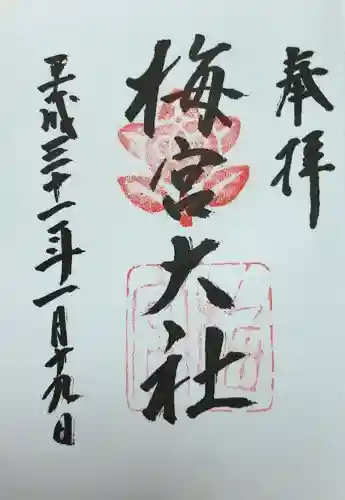 奉拝
梅宮大社
平成三十一年一月十九日